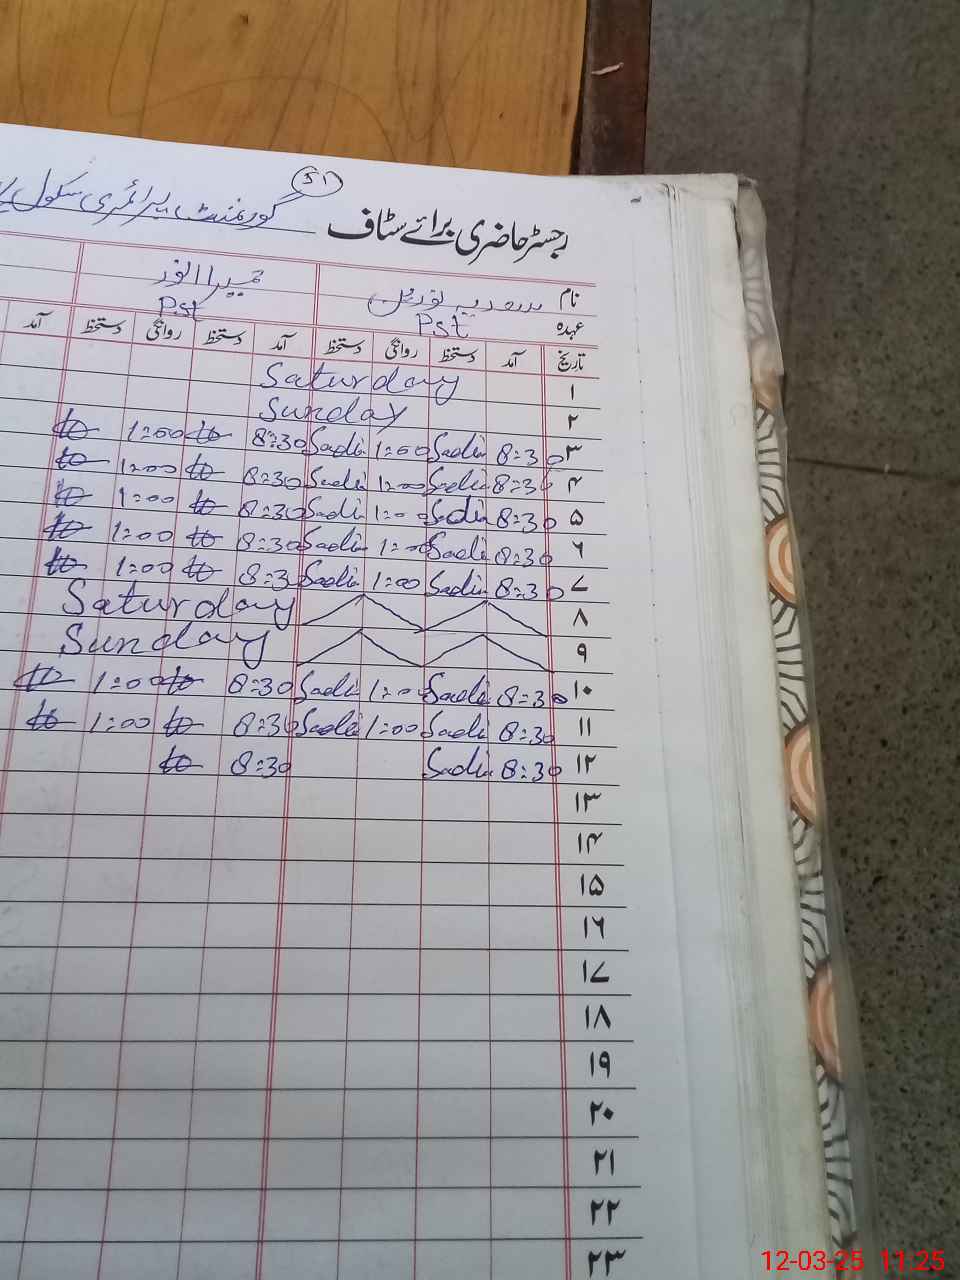 51
رجسٹر حاضری برائے سٹاف گورنمنٹ پرائمری سکول
نام سعدیہ نورین
عہدہ Pst Pst
تاریخ آمد دستخط روانگی دستخط آمد دستخط روانگی دستخط آمد
۱ Saturday
۲ Sunday
۳ 8:30 Sadia 1:00 Sadia 8:30 1:00
۴ 8:30 Sadia 1:00 Sadia 8:30 1:00
۵ 8:30 Sadia 1:00 Sadia 8:30 1:00
۶ 8:30 Sadia 1:00 Sadia 8:30 1:00
۷ 8:30 Sadia 1:00 Sadia 8:30 1:00
۸ Saturday
۹ Sunday
۱۰ 8:30 Sadia 1:00 Sadia 8:30 1:00
۱۱ 8:30 Sadia 1:00 Sadia 8:30 1:00
۱۲ 8:30 Sadia 8:30
۱۳
۱۴
۱۵
۱۶
۱۷
۱۸
۱۹
۲۰
۲۱
۲۲
۲۳
12-03-25 11:25